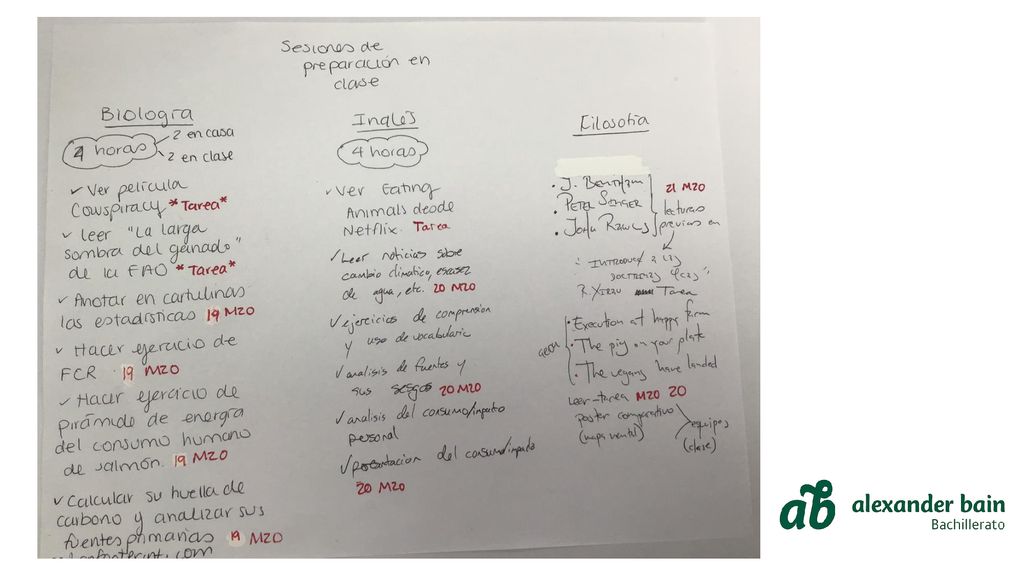 Sesiones de
preparación en
clase
Biología
4 horas
2 en casa
2 en clase
✓ Ver película
Cowspiracy *Tarea*
✓ leer "La larga
sombra del ganado"
de la FAO *Tarea*
✓ Anotar en cartulinas
las estadísticas 19 MZO
✓ Hacer ejercicio de
FCR 19 MZO
✓ Hacer ejercicio de
pirámide de energía
del consumo humano
de salmón. 19 MZO
✓ Calcular su huella de
carbono y analizar sus
fuentes primarias 19 MZO
Inglés
4 horas
✓ Ver Eating
Animals desde
Netflix. Tarea
✓ Leer noticias sobre
cambio climatico, escasez
de agua, etc. 20 MZO
✓ ejercicios de comprensión
y uso de vocabulario
✓ analisis de fuentes y
sus sesgos 20 MZO
✓ analisis del consumo/impacto
personal
✓ presentacion del consumo/impacto
20 MZO
Filosofía
• J. Bentham
• Peter Singer
• John Rawls
21 MZO
lecturas
previas en
R. Xirau Tarea
• Execution at happy farm
• The pig on your plate
• The vegans have landed
Leer-tarea MZO 20
poster comparativo
(mapa mental)
equipos
(clase)
ab
alexander bain
Bachillerato